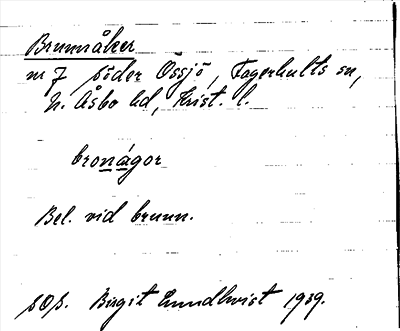 Brunnåker
nr 7 söder Össjö, Fagerhults sn,
N. Åsbo hd, Krist. l.
bronågor
Bel. vid brunn.
sOp. Birgit Lundkvist 1939.